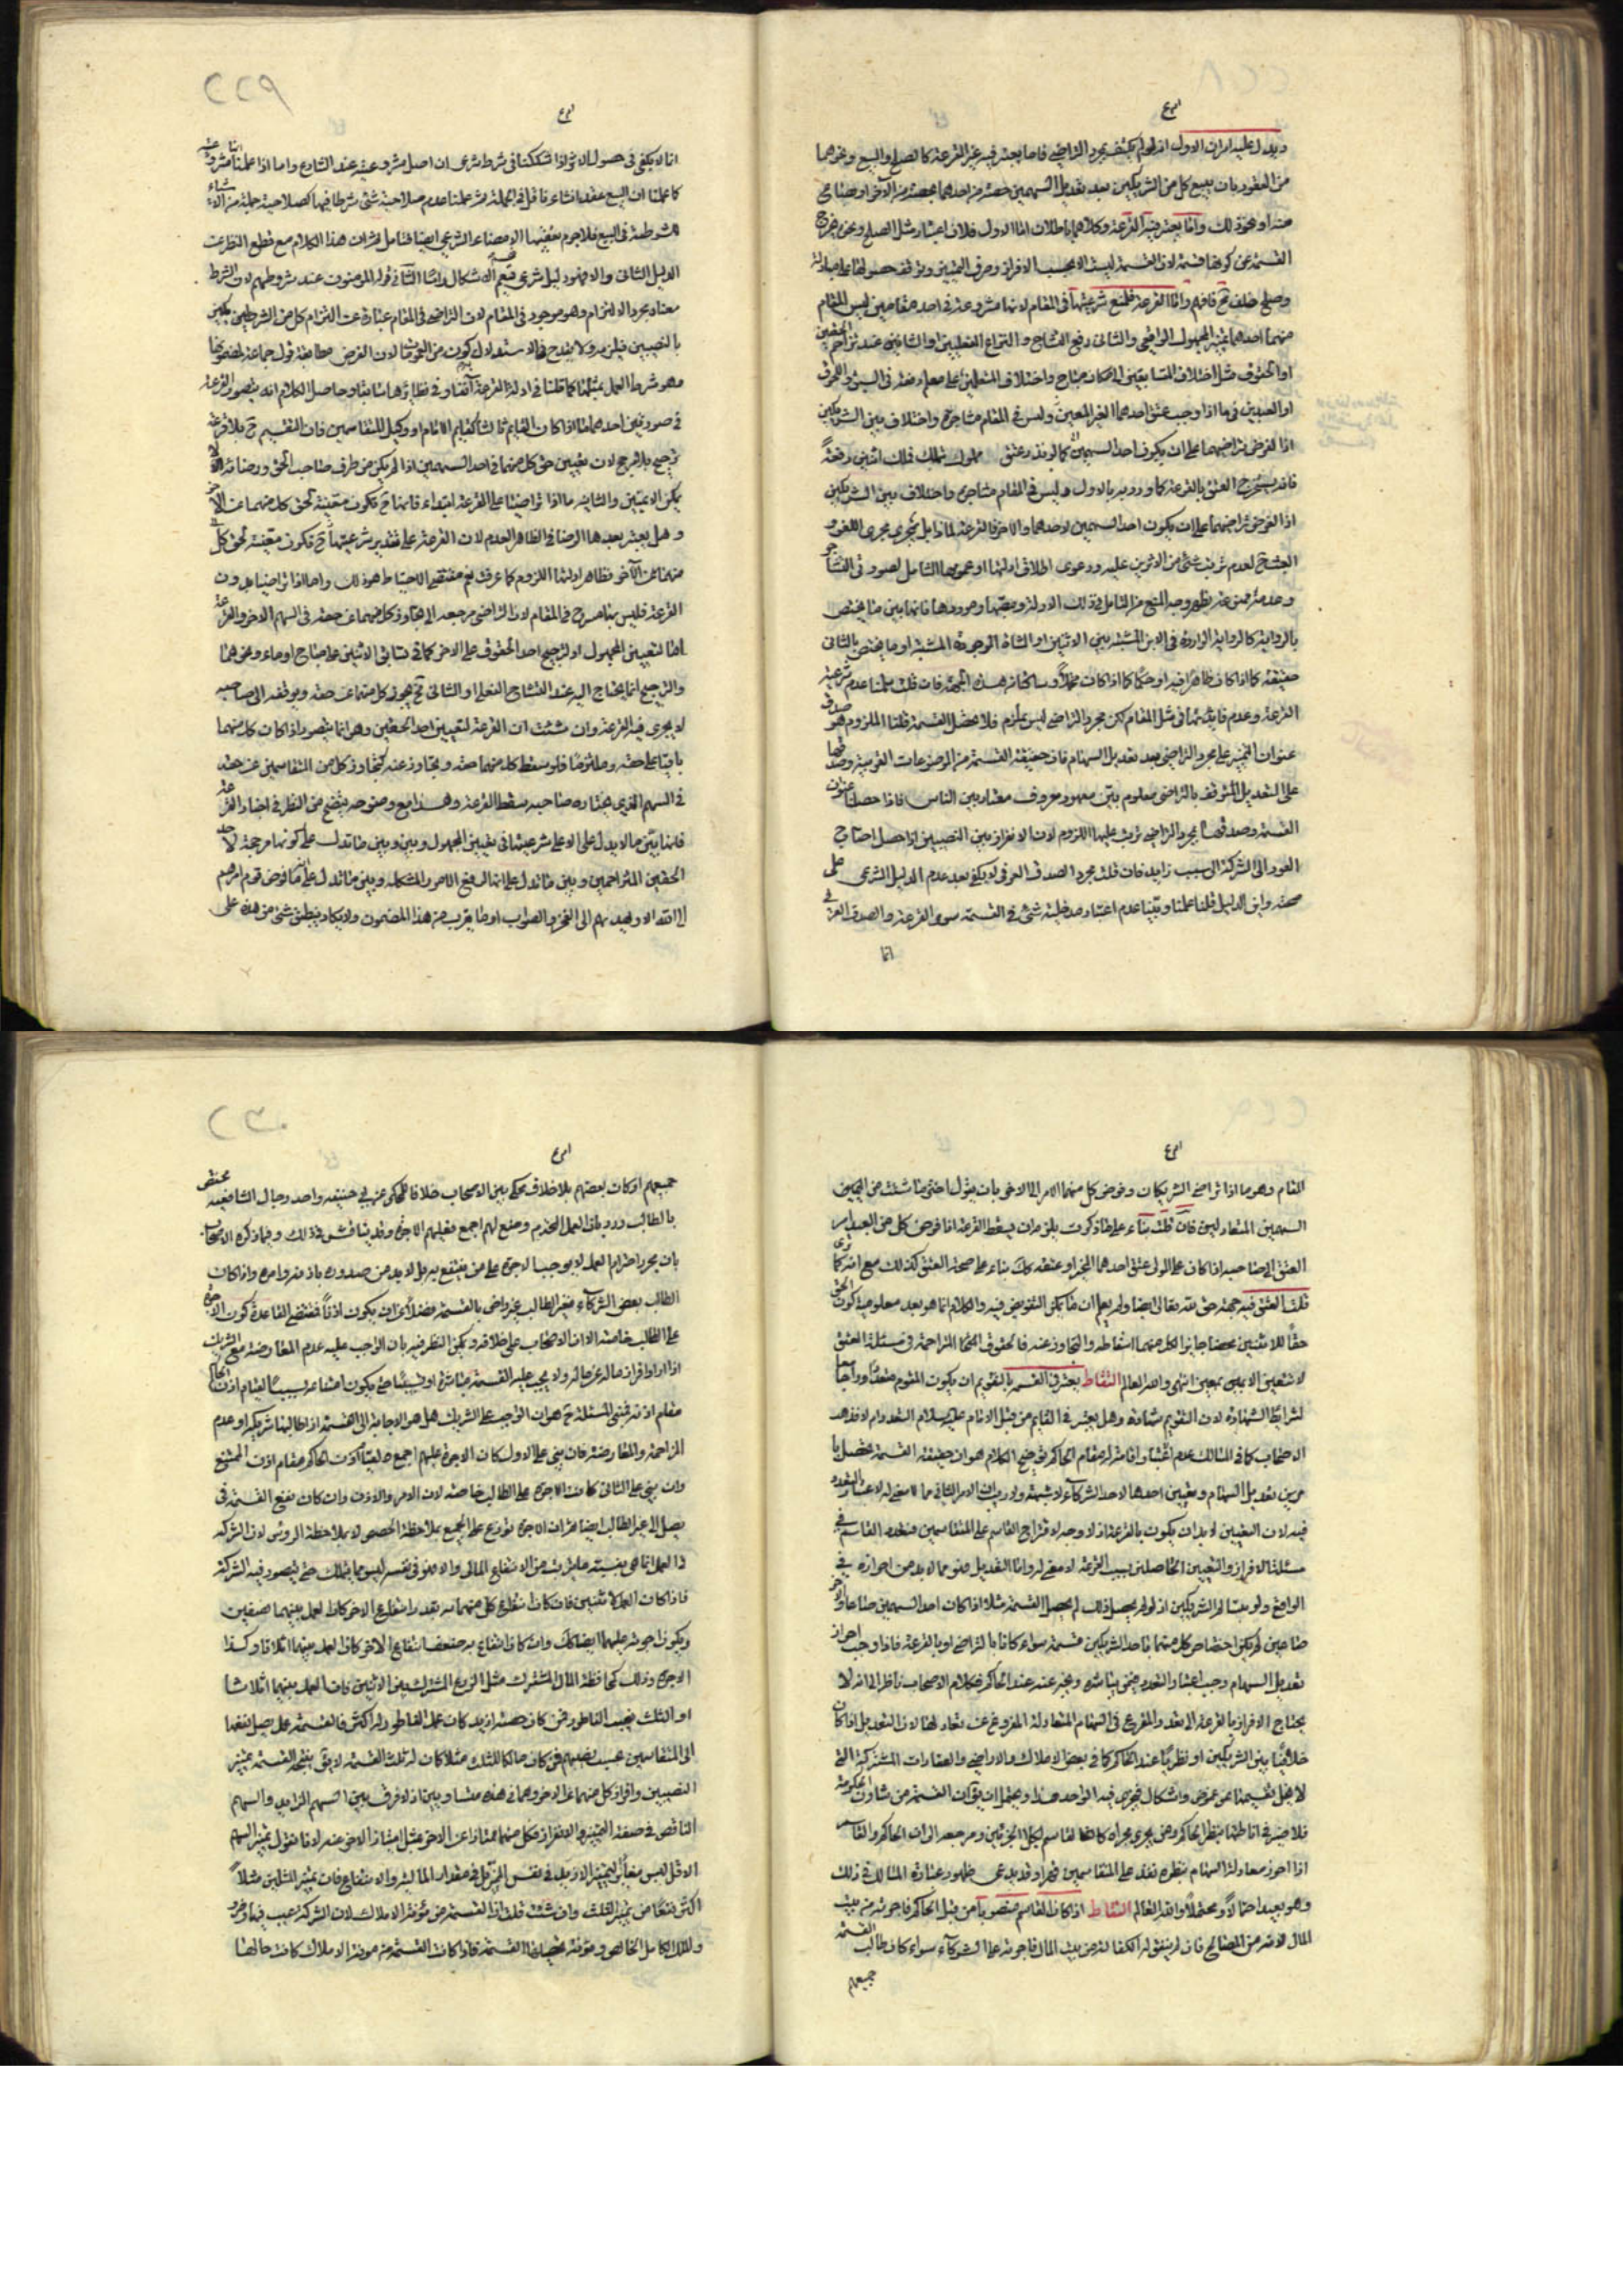 ويدل عليه امران الاول انه لو لم يكتف بمجرد التراضي فاما يعتبر فيه غير القرعة كالصلح والبيع ونحوهما
من العقود بان يبيع كل من الشريكين بعد تعديل السهمين حصته من احدهما بحصته من الآخر او يصالح
عنه او نحو ذلك واما يعتبر فيه القرعة وكلاهما باطلان اما الاول فلان اعتبار مثل الصلح ونحوه يخرج
القسمة عن كونها قسمة لان القسمة ليست الا بحسب الافراز وصرف التمييز وتوقف حصولها على مبادلة
وصلح خلف فافهم واما القرعة فلمنع شرعيتها في المقام لانها مشروعة في احد مقامين ليس المقام
منهما احدهما تميز المجهول الواقعي والثاني رفع التشاح والنزاع عند تزاحم الحقين
او الحقوق مثل اختلاف المتسابقين الى مكان مباح واختلاف المتعلمين على معلم دفعة في السبق
او العبدين في ما اذا وجب عتق احدهما الغير المعين وليس في المقام مشاجرة واختلاف بين الشريكين
اذا الفرض تراضيهما على ان يكون احد السهمين كما لو نذر عتق مملوك تملك فملك اثنين دفعة
فانه يستخرج العتق بالقرعة كما ورد به بالاول وليس في المقام مشاجرة واختلاف بين الشريكين
اذا الفرض تراضيهما على ان يكون احد السهمين لاحدهما والاخر فالقرعة لماذا بل يجري مجرى اللغو
العبث لعدم ترتب شيء من الاثرين عليه ودعوى اطلاق ادلتها او عمومها الشامل لصورتي التشاجر
وعدمه يظهر وجه المنع من التامل في تلك الادلة وموردها فانها بين ما يختص
بالرواية كالرواية الواردة في الابن المشتبه بين الاثنين او الشاة الموطوءة المشتبهة او ما يختص بالثاني
حقيقة كما اذا كان ظاهرا فيه او حكما كما اذا كان مجملا وساكتا من هذه الجهة فان قلت سلمنا عدم شرعية
القرعة وعدم فايدتها في مثل المقام لكن مجرد التراضي ليس بملزم فلا تحصل القسمة قلنا الملزم هو صدق
عنوان التميز على مجرد التراضي بعد تعديل السهام فان حقيقة القسمة من الموضوعات العرفية وصدقها
على التعديل المتوقف بالتراضي معلوم بين معهود معروف معتاد بين الناس فاذا حصلنا عنوان
القسمة وصدقها بمجرد التراضي ترتب عليها اللزوم لان الافراز بين النصيبين اذا حصل احتاج
العود الى الشركة الى سبب زايد فان قلت مجرد الصدق العرفي لا يكفي بعد عدم الدليل الشرعي على
صحته واين الدليل قلنا علمنا وبينا عدم اعتبار مدخلية شيء في القسمة سوى القرعة والصدق العرفي
اما
٢٢٩
انما لا يكفي في حصول الاثر اذا شككنا في شرط شرعي ان اصل مشروعيته عند الشارع واما اذا علمنا مشروعيته
كما علمنا ان البيع عقد انشاء نافل في الجملة ثم علمنا عدم صلاحية شيء شرطا فيها كصلاحية جملة من الاشياء
شرطية في البيع فلا جرم نعقبها الامضاء الشرعي ايضا فتامل ثم ان هذا الكلام مع قطع النظر عن
الدليل الثاني والا فهو دليل شرعي قطع الاشكال واما الثاني فقوله المؤمنون عند شروطهم لان الشرط
معناه مجرد الالتزام وهو موجود في المقام لان التراضي في المقام عبارة عن التزام كل من الشريكين
بالنصيبين فيلزم ولا يقدح في الاستدلال كونه من العمومات لان الغرض مطابقة قول جماعة لمضمونها
وهو شرط العمل بمثلها كما قلنا في ادلة القرعة آنفا وفي نظائرها سابقا وحاصل الكلام انه يتصور القرعة
في صورتين احدهما اذا كان القاسم ثالثا كقاسم الامام او وكيل للمتقاسمين فان التقسيم ح بلا قرعة
ترجيح بلا مرجح لان تعيين حق كل منهما في احد السهمين اذا لم يكن من طرف صاحب الحق ورضائه لا
يمكن الا بمعين والثانية ما اذا تراضيا على القرعة ابتداء فانها ح تكون معينة لحق كل منهما عن الآخر
وهل يعتبر بعدها الرضا في الظاهر العدم لان القرعة على تقدير شرعيتها ح تكون معينة لحق كل
منهما عن الآخر وظاهر ادلتها اللزوم كما عرفت نعم مقتضى الاحتياط هو ذلك واما اذا تراضيا بدون
القرعة فليس بها مسرح في المقام لان التراضي مرجعه الى تجاوز كل منهما عن حقه في السهم الاخر والقرعة
اما لتعيين المجهول او لترجيح احد الحقوق على الاخر كما في تسابق الاثنين على مباح او ماء ونحوهما
والترجيح انما يحتاج اليه عند التشاح الفعلي او الشأني نعم يجوز كل منهما عن حقه ويوقفه الى صاحبه
لا يجري فيه القرعة وان شئت ان القرعة لتعيين احد الحقين وهو انما يتصور اذا كان كل منهما
باقيا على حقه وملتزما فلو سقط كل منهما حقه وتجاوز عنه كتجاوز كل من المتقاسمين عن حقه
في السهم الذي يختاره صاحبه سقط القرعة وهذا مع وضوحه يتضح من النظر في اخبار القرعة
فانها بين ما لا يدل على الا على شرعيتها في تعيين المجهول وبين ما تدل على كونها مرجحة لاحد
الحقين المتزاحمين وبين ما تدل على انها لرفع الامور المشكلة وبين ما تدل على ما فوض قوم امرهم
الى الله الا وخرج سهم المحق والصواب او ما يقرب من هذا المضمون ولا يكاد ينطبق شيء من هذه على
المقام وهو ما اذا تراضى الشريكان وفوض كل منهما الامر الى الاخر بان يقول اختر ما شئت من هذين
السهمين المتعادلين فان قلت بناء على ما ذكرت يلزم ان يسقط القرعة اذا فوض كل من العبيد امر
العتق الى صاحبه اذا كان على المولى عتق احدهما المخير او عتقه كك بناء على صحة العتق كذلك مع انه كما ترى
قلت العتق فيه جهة حق لله تعالى ايضا ولم يعلم ان ما يمكن التفويض فيه والكلام انما هو بعد معلومية كون الحق
حقا للاثنين محضا جايزا لكل منهما اسقاطه والتجاوز عنه فالحقوق المتزاحمة في مسئلة العتق
لا تتعين الا بمعين انتهى والله العالم التقاط يعتبر في القسمة بالتقويم ان يكون المقوم متعددا وجامعا
لشرايط الشهادة لان التقويم شهادة وهل يعتبر في القاسم من قبل الامام عليه السلام التعدد ام لا
الاصحاب كما في المسالك عدم اعتباره اقامة له مقام الحاكم توضيح الكلام هو ان حقيقة القسمة تحصل با
مرين تعديل السهام وتعيين احدها لاحد الشركاء لا شبهة ولا ريب ان الامر الثاني مما لا معنى له لاعتبار التعدد
فيه لان التعيين لا بد ان يكون بالقرعة اذ لا وجه لاقتراح القاسم على المتقاسمين فتعدد القاسم في
مسئلة الافراز والتعيين الحاصلين بسبب القرعة لا معنى له واما التعديل فهو مما لا بد من احرازه في
الواقع ولو بتسالم الشريكين اذ لو لم يحصل ذلك لم يحصل القسمة مثلا اذا كان احد السهمين صاعا والاخر
صاعين لم يكن اختصاص كل منهما باحد الشريكين قسمة سواء كانا بالتراضي او بالقرعة فاذا وجب احراز
تعديل السهام وجب اعتبار التعدد فيمن يباشره ويخبر عنه عند الحاكم فكلام الاصحاب ناظر الى انه لا
يحتاج الافراز بالقرعة الى تعدد المقرع في السهام المتعادلة المفروغ عن تعادلها لان التعديل اذا كان
خلافيا بين الشريكين او نظريا عند الحاكم كما في بعض الاملاك والاراضي والعقارات المشتركة التي
لا يخلو تقييمها عن غموض واشكال فيجري فيه الواحد هذا ويحتمل ان يق ان القسمة من شئون الحكومة
فلا ضير في اناطتها بنظر الحاكم ومن يجري مجراه كالقاسم لكلا الجزئين ومرجعه الى ان الحاكم والقاسم
اذا احرز معادلة السهام بنظره نفذ على المتقاسمين قهرا وقد يدعى ظهور عبارة المسالك في ذلك
وهو بعيد احتمالا ومحتملا والله العالم التقاط اذا كان القاسم منصوبا من قبل الحاكم فاجرته من بيت
المال لانه من المصالح فان لم ينفق له الكفالة من بيت المال فاجرته على الشركاء سواء كان طالب القسمة
جميعهم
٢٣٠
جميعهم او كان بعضهم بلا خلاف محكي بين الاصحاب خلافا للمحكي عن ابي حنيفة واحد رجال الشافعية مختص
بالطالب وردوه بان العمل المحترم وقع لهم اجمع فعليهم الاجرة وقد يناقش في ذلك وفيما ذكره الاصحاب
بان مجرد احترام العمل لا يوجب الاجرة على من ينتفع به بل لا بد من صدوره باذنه وامره واذا كان
الطالب بعض الشركاء فغير الطالب غير راض بالقسمة فضلا عن ان يكون اذنا فمقتضى القاعدة كون الاجرة
على الطالب خاصة الا ان الاصحاب على خلافه ويمكن النظر فيه بان الواجب عليه عدم المعارضة مع الشريك
اذا اراد افراز ماله عن ماله ولا يجب عليه القسمة مباشرة او تسبيبا حتى يكون امتناعه سببا لقيام اذن الحاكم
مقام اذنه فتبتني المسئلة ح هو ان الواجب على الشريك هل هو الاجابة الى القسمة اذا طالبها شريكه او عدم
المزاحمة والمعارضة فان بني على الاول كان الاجرة عليهم اجمع لقيام اذن الحاكم مقام اذن الممتنع
وان بني على الثاني كانت الاجرة على الطالب خاصة لانه الامر والاذن وان كان نفع القسمة قد
يصل الى غير الطالب ايضا ثم ان الاجرة توزع على الجميع بملاحظة الحصص لا بملاحظة الرؤس لان الشركة
في العمل انما هي بنسبة ما يترتب من الانتفاع المالي والا فهو في نفسه ليس مما يملك حتى يتصور فيه الشركة
فاذا كان العمل لاثنين فان كان انتفاع كل منهما به بقدر انتفاع الاخر كان العمل بينهما نصفين
ويكون اجرته عليهما ايضا كك وان كان انتفاع به ضعف انتفاع الاخر كان العمل بينهما اثلاثا وكذا
الاجرة وذلك كمحافظة المال المشترك مثل الزرع المشترك بين الاثنين فان العمل بينهما اثلاثا
او الثلث بحسب الناطور فمن كان حصته ازيد كان عمل الناطور له اكثر فالقسمة عمل يصل نفعها
الى المتقاسمين حسب نصيبهم فمن كان مالكا للثلث مثلا كان له ثلث القسمة لا يق نتيجة القسمة تميز
النصيبين وافراز كل منهما عن الاخر وهما في هذه متساويين اذ لا فرق بين السهم الزايد والسهم
الناقص في صفة التميز والافراز فكل منهما ممتاز عن الاخر بمثل امتياز الاخر عنه لانا نقول تميز السهم
الاقل ليس مغايرا لتميز الازيد في نفس التميز بل في مقدار المالية والانتفاع فان تميز الثلثين مثلا
اكثر نفعا من تميز الثلث وان شئت قلت ان القسمة من مؤنة الاملاك لان الشركة عيب فيها
والملك الكامل الخالص ومؤنة تحصيلها القسمة فاذا كانت القسمة من مؤنة الاملاك كانت حالها